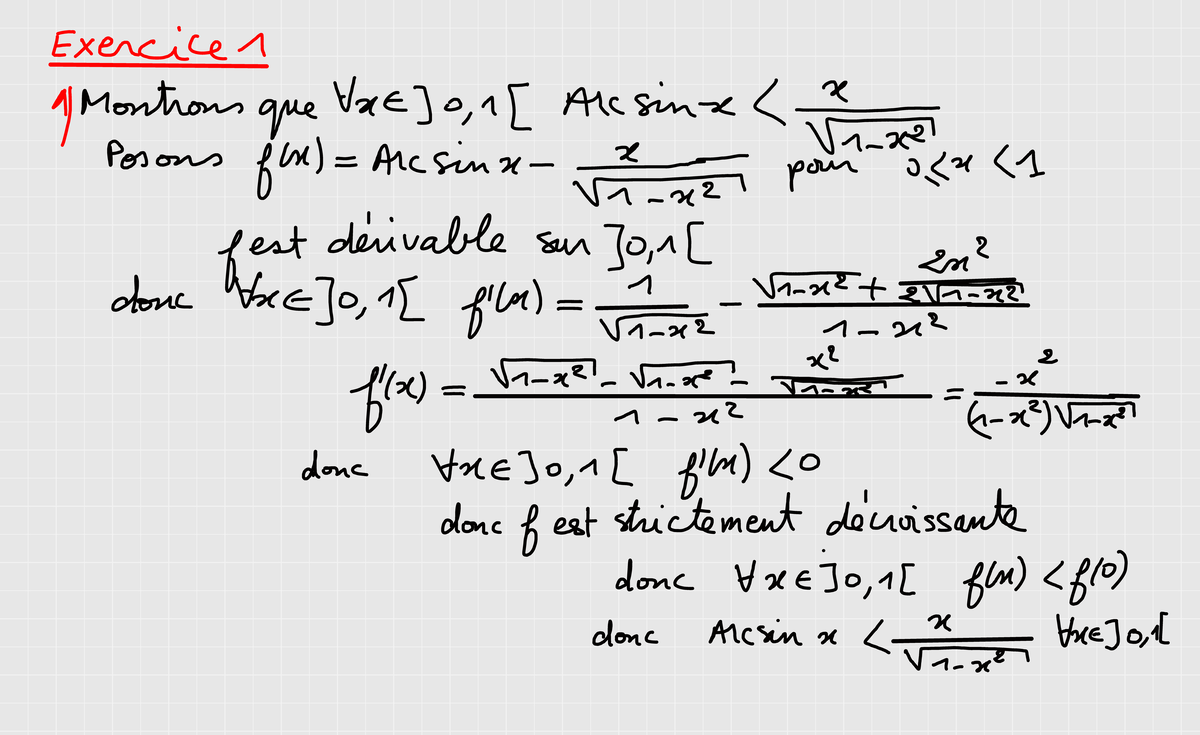 Exercice 1
1) Montrons que ∀x∈]0,1[ Arcsin x < x/√(1-x²)
Posons f(x) = Arcsin x - x/√(1-x²) pour 0≤x<1
f est dérivable sur ]0,1[
donc ∀x∈]0,1[ f'(x) = 1/√(1-x²) - (√(1-x²) + 2x²/(2√(1-x²)))/(1-x²)
f'(x) = (√(1-x²) - √(1-x²) - x²/√(1-x²))/(1-x²) = -x²/((1-x²)√(1-x²))
donc ∀x∈]0,1[ f'(x) <0
donc f est strictement décroissante
donc ∀x∈]0,1[ f(x) < f(0)
donc Arcsin x < x/√(1-x²) ∀x∈]0,1[